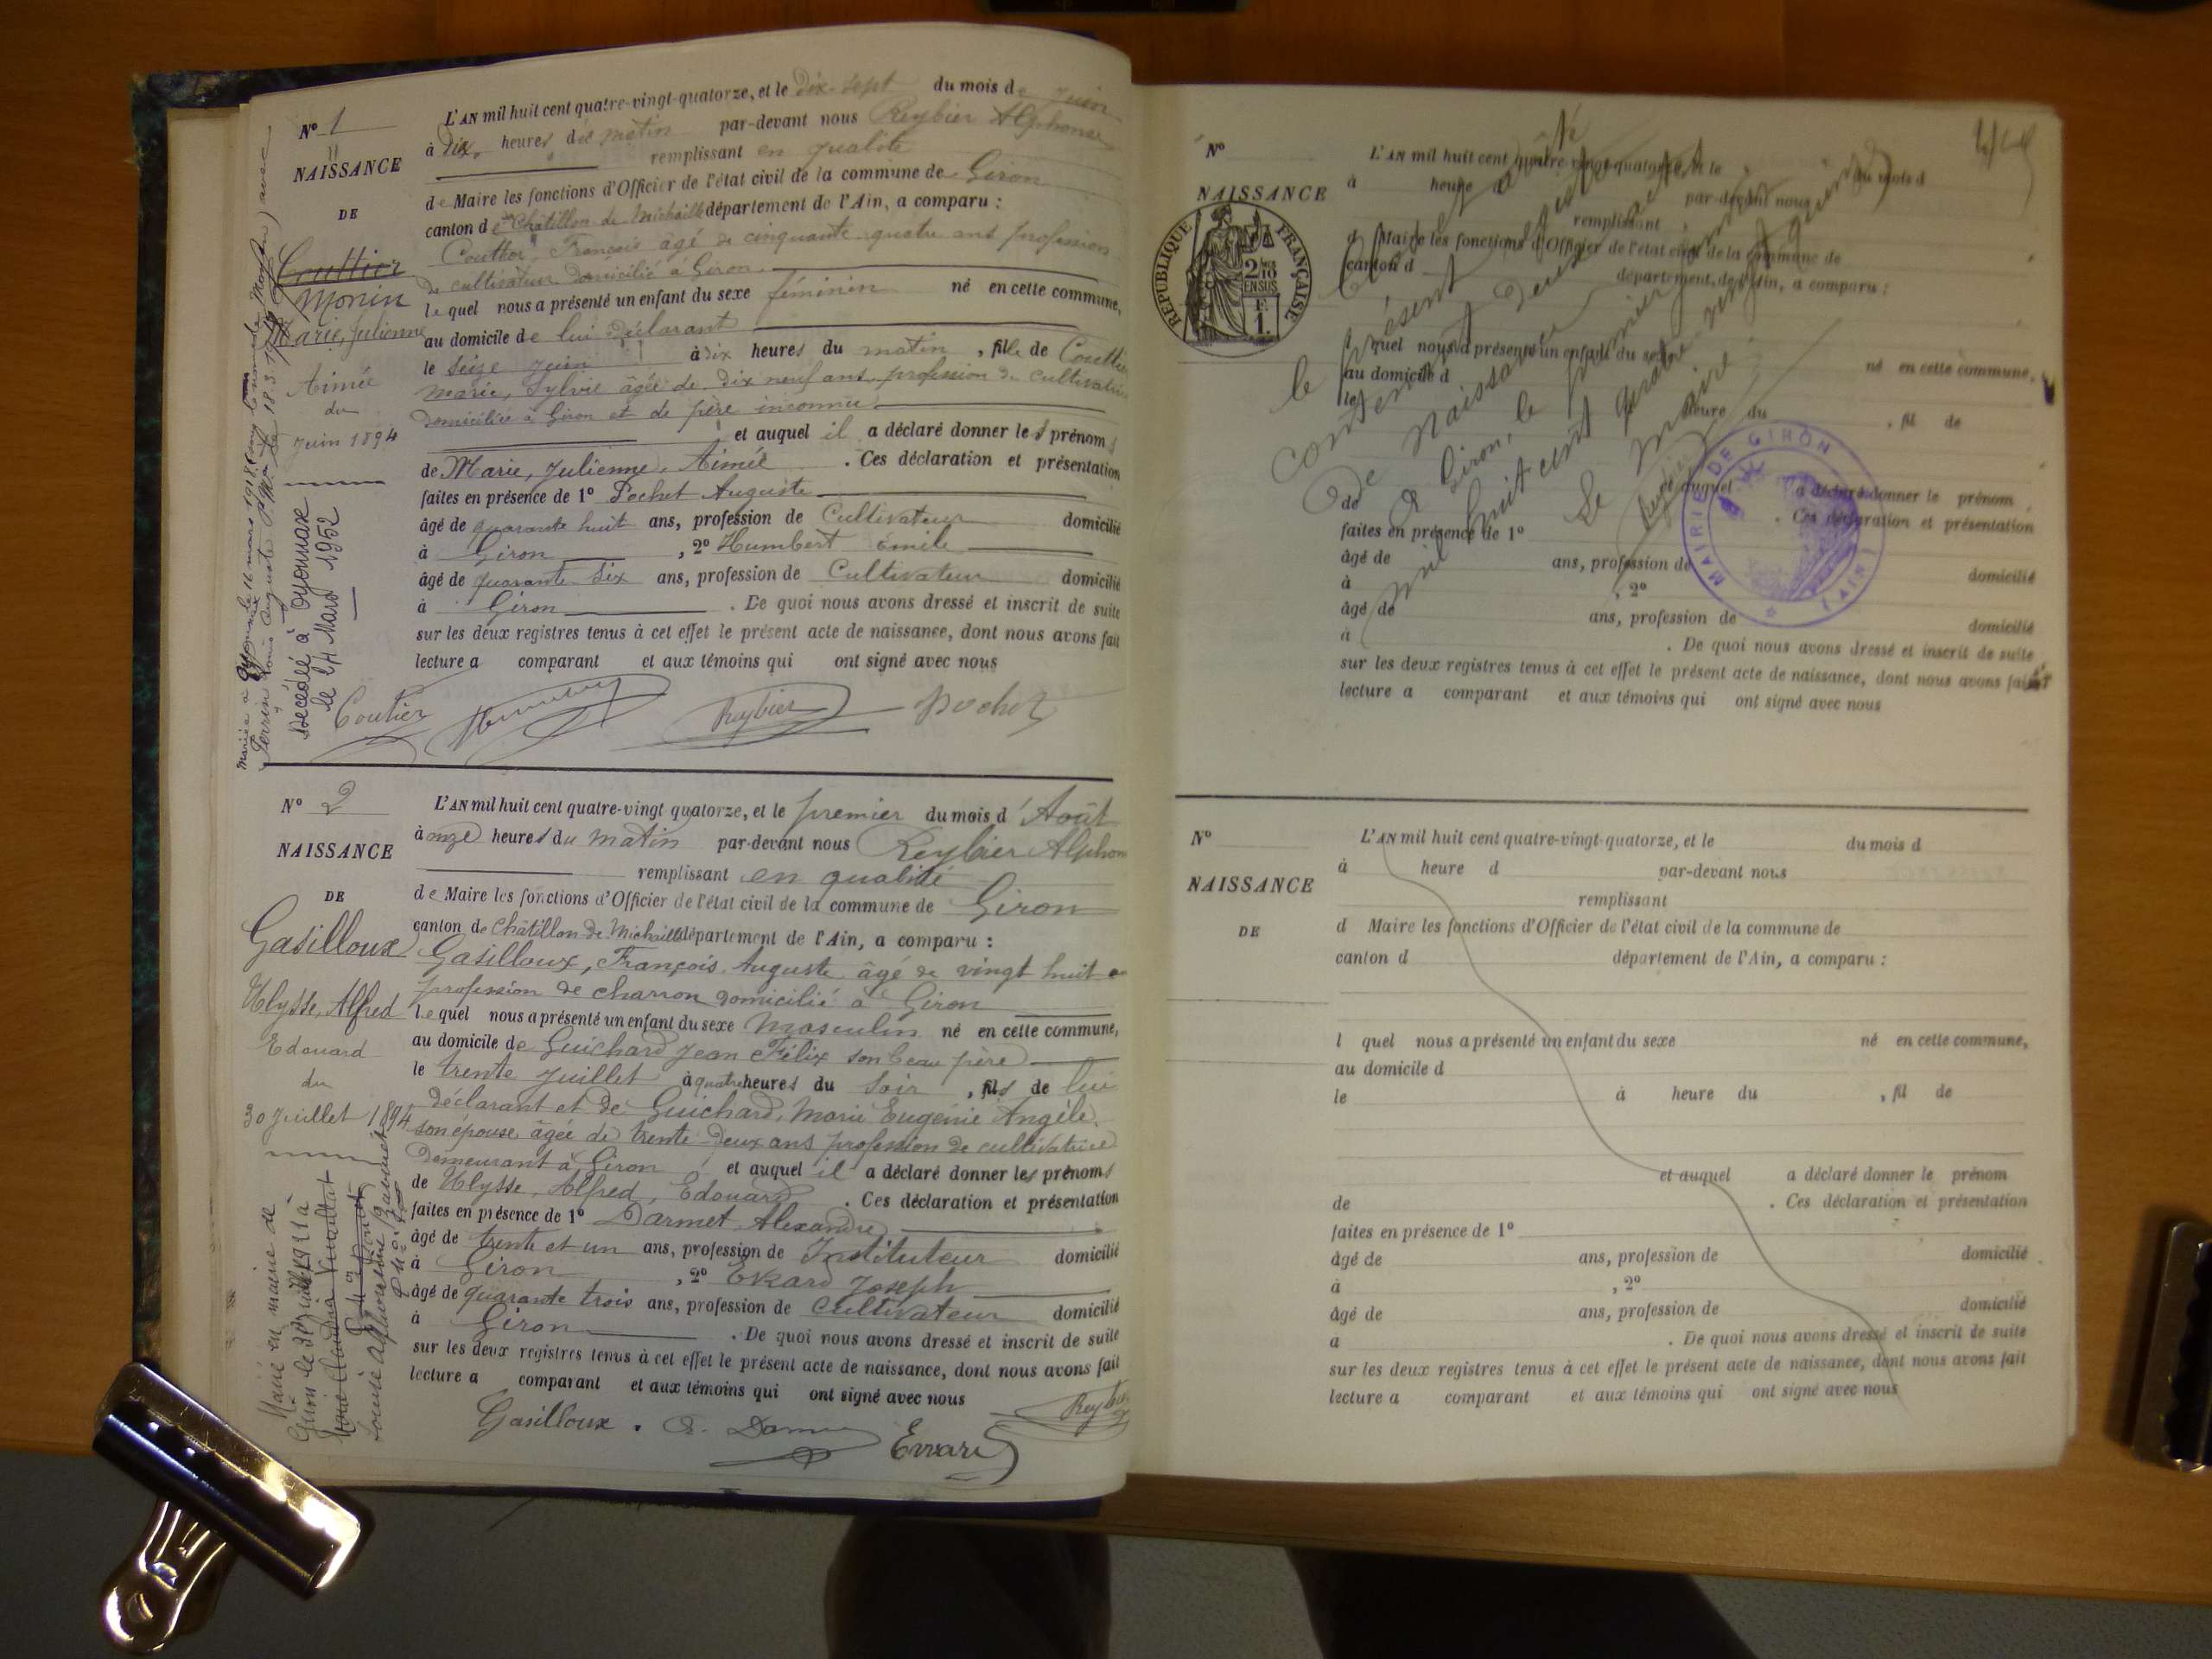 N° 1
NAISSANCE
DE
Couttier
Monin
Marie, Julienne
Aimée
du
Juin 1894
Décédée à Oyonnax
le 24 Mars 1952
L'AN mil huit cent quatre-vingt-quatorze, et le dix-sept du mois de Juin
à dix heures du matin par-devant nous Reybier Alphonse
remplissant en qualité
de Maire les fonctions d'Officier de l'état civil de la commune de Giron
canton de Châtillon de Michaille département de l'Ain, a comparu :
François âgé de cinquante quatre ans profession
de cultivateur domicilié à Giron
lequel nous a présenté un enfant du sexe féminin né en cette commune,
au domicile de lui déclarant
le seize juin à dix heures du matin, fille de
Marie, Sylvie âgée de dix neuf ans profession de cultivatrice
domiciliée à Giron et de père inconnu
et auquel il a déclaré donner les prénoms
de Marie, Julienne, Aimée. Ces déclaration et présentation
faites en présence de 1° Pochet Auguste
âgé de quarante huit ans, profession de Cultivateur domicilié
à Giron, 2° Humbert Emile
âgé de quarante six ans, profession de Cultivateur domicilié
à Giron. De quoi nous avons dressé et inscrit de suite
sur les deux registres tenus à cet effet le présent acte de naissance, dont nous avons fait
lecture a comparant et aux témoins qui ont signé avec nous
Coutier Reybier Pochet
N° 2
NAISSANCE
DE
Gasilloux
Ulysse, Alfred
Edouard
du
30 Juillet 1894
Marié en mairie de
L'AN mil huit cent quatre-vingt quatorze, et le premier du mois d'Août
à onze heures du matin par-devant nous Reybier Alphon
remplissant en qualité
de Maire les fonctions d'Officier de l'état civil de la commune de Giron
canton de Châtillon de Michaille département de l'Ain, a comparu :
Gasilloux, François Auguste âgé de vingt huit
profession de charron domicilié à Giron
lequel nous a présenté un enfant du sexe Masculin né en cette commune,
au domicile de Guichard Jean Félix son beau père
le trente juillet à quatre heures du soir, fils de lui
déclarant et de Guichard, Marie Eugénie Angèle,
son épouse âgée de trente deux ans profession de cultivatrice
demeurant à Giron et auquel il a déclaré donner les prénoms
de Ulysse, Alfred, Edouard. Ces déclaration et présentation
faites en présence de 1° Darmet Alexandre
âgé de trente et un ans, profession de Instituteur domicilié
à Giron, 2° Evrard Joseph
âgé de quarante trois ans, profession de Cultivateur domicilié
à Giron. De quoi nous avons dressé et inscrit de suite
sur les deux registres tenus à cet effet le présent acte de naissance, dont nous avons fait
lecture a comparant et aux témoins qui ont signé avec nous
Gasilloux. Evrard
N°
NAISSANCE
RÉPUBLIQUE FRANÇAISE
2/10 EN SUS
F. 1.
L'AN mil huit cent quatre-vingt-quatorze, et le du mois d
à heure d par-devant nous
remplissant
d Maire les fonctions d'Officier de l'état civil de la commune de
canton d département de l'Ain, a comparu :
l quel nous a présenté un enfant du sexe né en cette commune,
au domicile d
le heure du, fil de
et auquel a déclaré donner le prénom
de. Ces déclaration et présentation
faites en présence de 1°
âgé de ans, profession de domicilié
à, 2°
âgé de ans, profession de domicilié
à. De quoi nous avons dressé et inscrit de suite
sur les deux registres tenus à cet effet le présent acte de naissance, dont nous avons fait
lecture a comparant et aux témoins qui ont signé avec nous
le présent
contenant deux
de naissance
à Giron, le premier
mil huit cent quatre-vingt
Le Maire
MAIRIE DE GIRON (AIN)
N°
NAISSANCE
DE
L'AN mil huit cent quatre-vingt-quatorze, et le du mois d
à heure d par-devant nous
remplissant
d Maire les fonctions d'Officier de l'état civil de la commune de
canton d département de l'Ain, a comparu :
l quel nous a présenté un enfant du sexe né en cette commune,
au domicile d
le à heure du, fil de
et auquel a déclaré donner le prénom
de. Ces déclaration et présentation
faites en présence de 1°
âgé de ans, profession de domicilié
à, 2°
âgé de ans, profession de domicilié
a. De quoi nous avons dressé et inscrit de suite
sur les deux registres tenus à cet effet le présent acte de naissance, dont nous avons fait
lecture a comparant et aux témoins qui ont signé avec nous